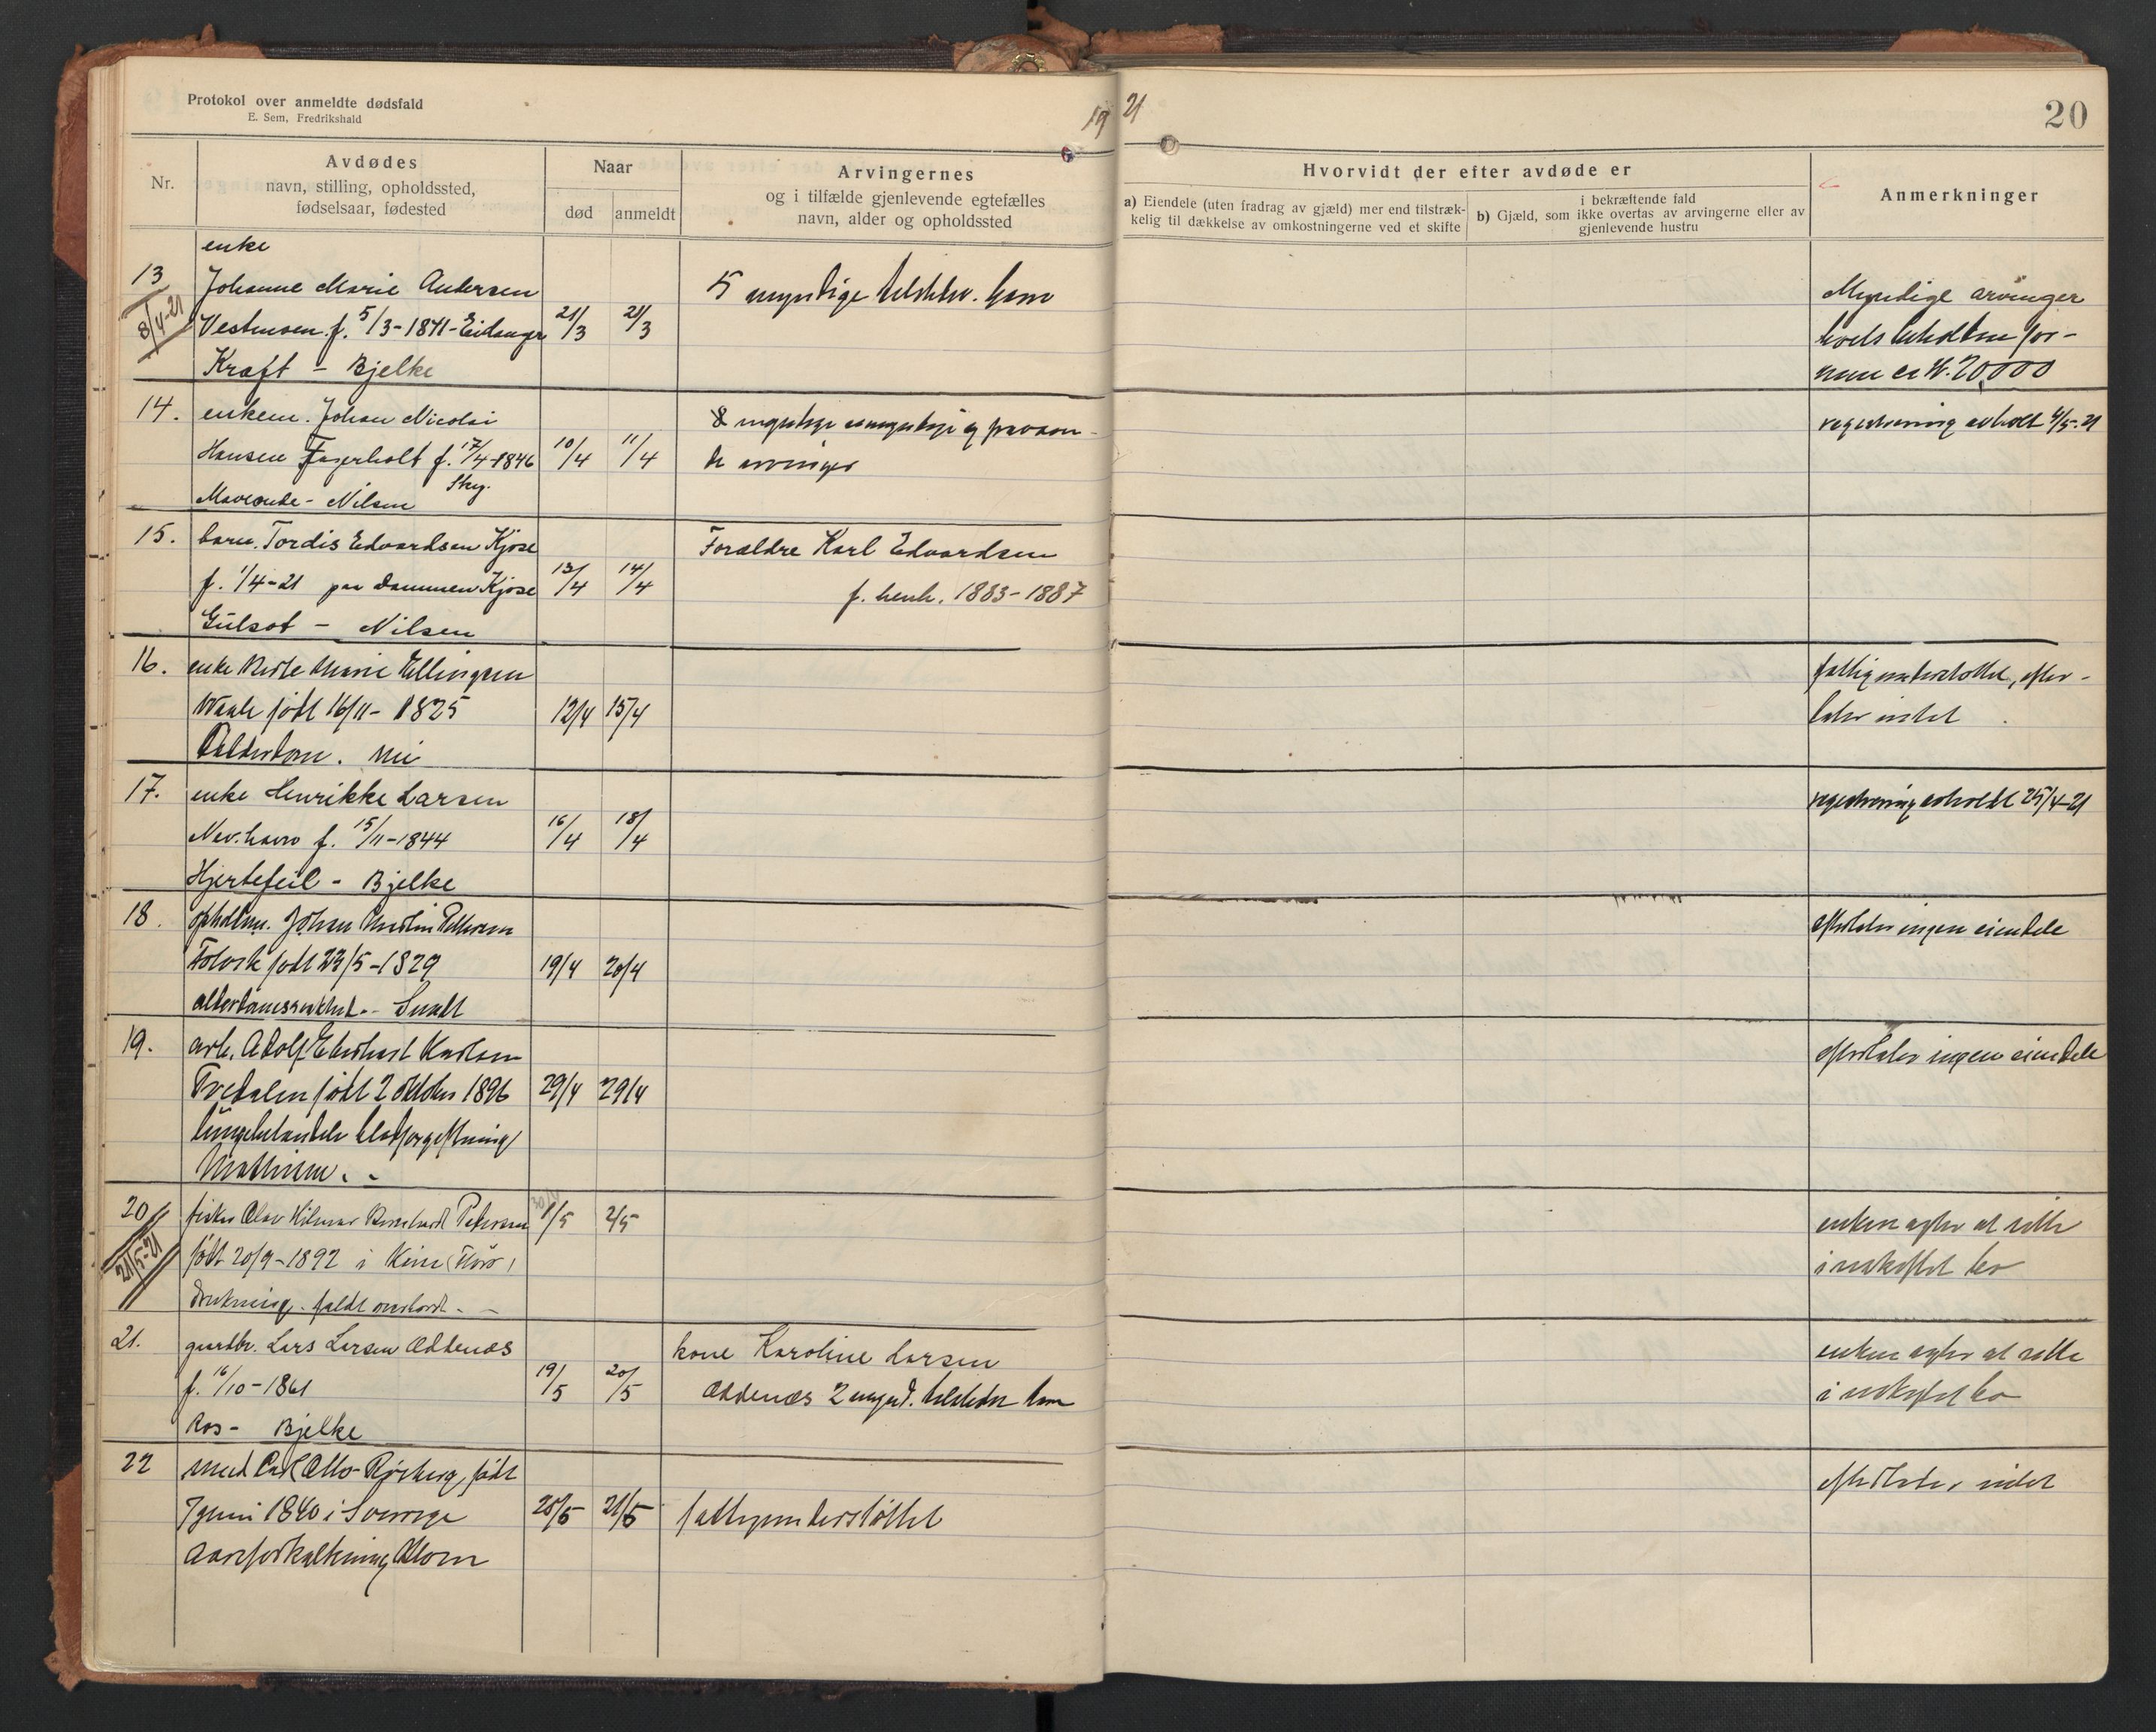 Protokol over anmeldte dødsfald
E. Sem, Fredrikshald
19 21
20
Nr.
Avdødes
navn, stilling, opholdssted,
fødselsaar, fødested
Naar
død
anmeldt
Arvingernes
og i tilfælde gjenlevende egtefælles
navn, alder og opholdssted
Hvorvidt der efter avdøde er
a) Eiendele (uten fradrag av gjæld) mer end tilstræk-
kelig til dækkelse av omkostningerne ved et skifte
i bekræftende fald
b) Gjæld, som ikke overtas av arvingerne eller av
gjenlevende hustru
Anmerkninger
enke
13 Johanne Marie Andersen
8/4-21 f. 5/3-1841-Eidanger 21/3 21/3
Kraft - Bjelke
5 myndige barn
Myndige arvinger
20,000
14. enkem. Johan Nicolai
Hansen Fagerholt f. 17/4-1846 10/4 11/4
Nilsen
arvinger
registrering avholt 4/5-21
15. barn. Tordis Edvardsen Kjose
f. 1/4-21 paa Dammen Kjose 13/4 14/4
Gulsot - Nilsen
Forældre Karl Edvardsen
f. henh. 1883-1887
16. enke Berte Marie Ellingsen
født 16/11-1825 12/4 15/4
Alderdom.
fattigunderstøttet, efter-
later intet
17. enke Henrikke Larsen
Nev.havn f. 15/11-1844 16/4 18/4
Hjertefeil - Bjelke
registrering avholdt 25/4-21
18. Johan Pettersen
født 23/5-1829 19/4 20/4
efterlater ingen eiendele
19. arb. Adolf Karlsen
Tvedalen født 2 oktober 1896 29/4 29/4
lungebetændelse blodforgiftning
Mathisen. -
efterlater ingen eiendele
20 fisker Olav Hilmar Bernhard Petersen 1/5 2/5
21/5-21 født 20/9-1892 i
Drukning. faldt overbord. -
enken agter at sitte
i uskiftet bo
21. gaardbr. Lars Larsen Oddenæs
f. 16/10-1861 19/5 20/5
Ros - Bjelke
kone Karoline Larsen
Oddenæs 2 mynd. barn
enken agter at sitte
i uskiftet bo
22 Carl Otto født
7 juni 1840 i Sverige 20/5 21/5
Aareforkalkning
fattigunderstøttet
efterlater intet